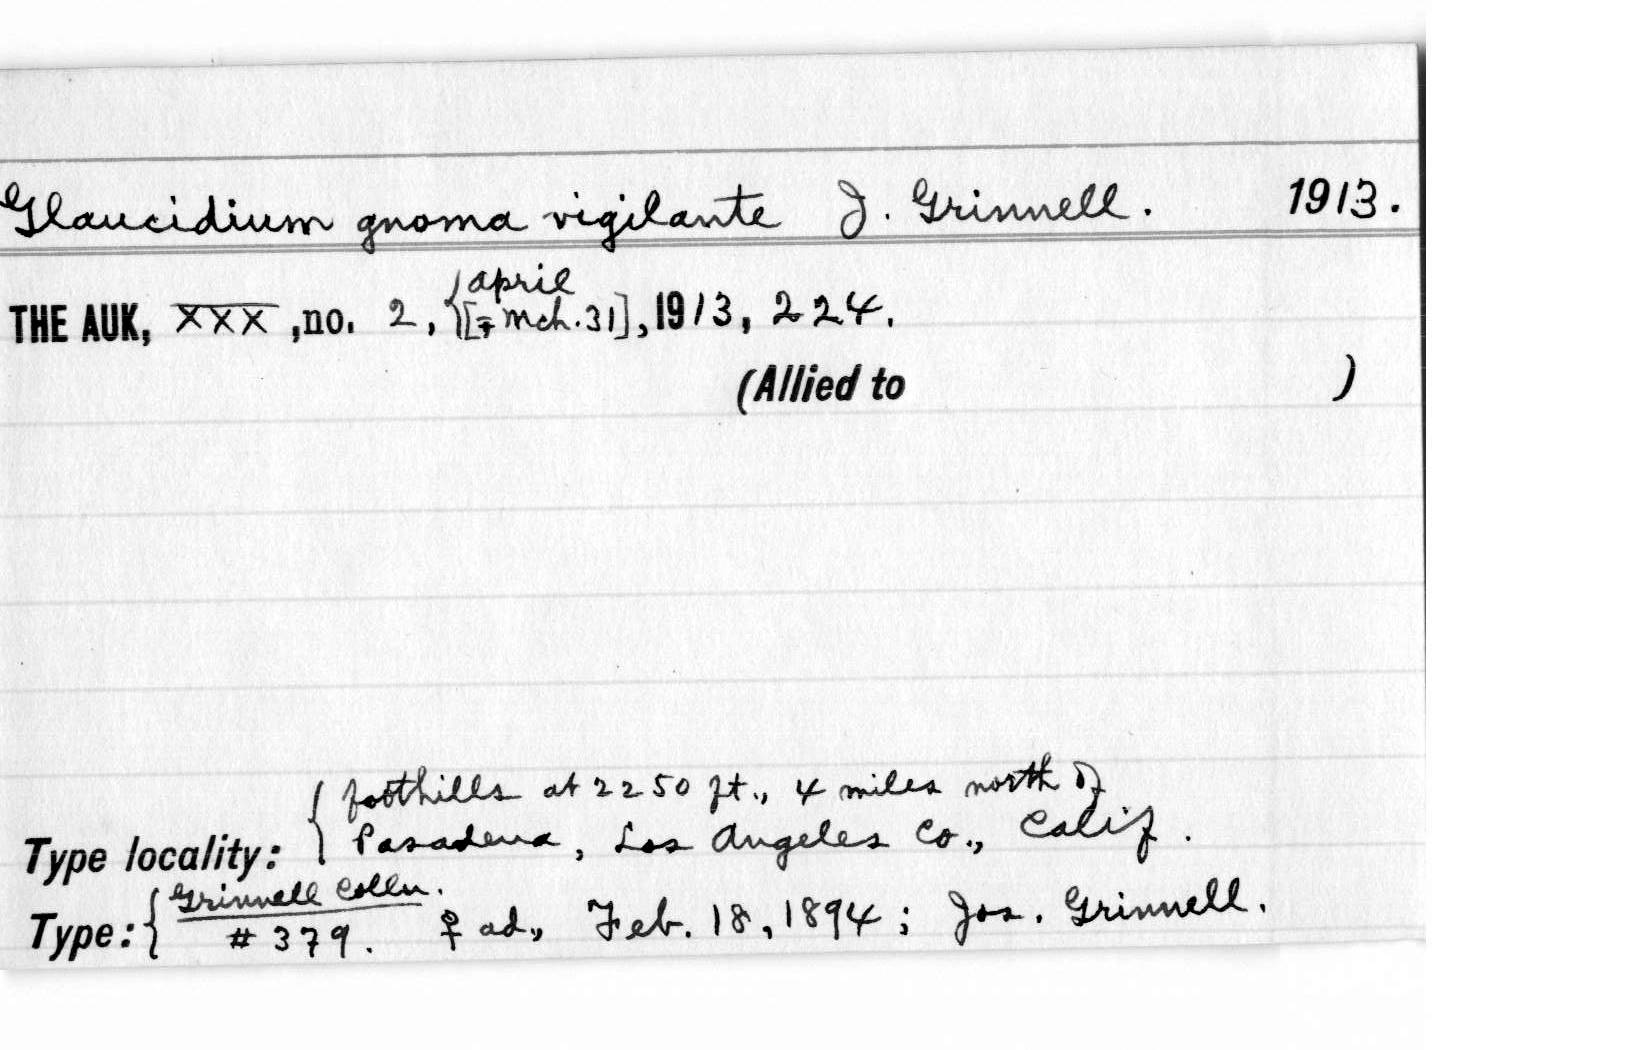 Glaucidium gnoma vigilante J. Grinnell. 1913.
THE AUK, XXX, no. 2, {april
[= Mch. 31], 1913, 224.
(Allied to )
Type locality: {foothills at 2250 ft., 4 miles north of
Pasadena, Los Angeles Co., Calif.
Type: {Grinnell Colln.
# 379. ♀ ad., Feb. 18, 1894; Jos. Grinnell.